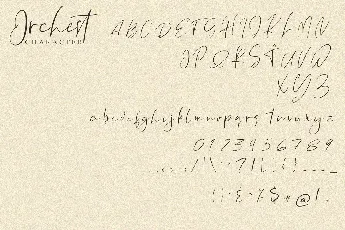 Orchest
CHARACTER
A B C D E F G H I J K L M N
O P Q R S T U V W
X Y Z
a b c d e f g h i j k l m n o p q r s t u v w x y z
0 1 2 3 4 5 6 7 8 9